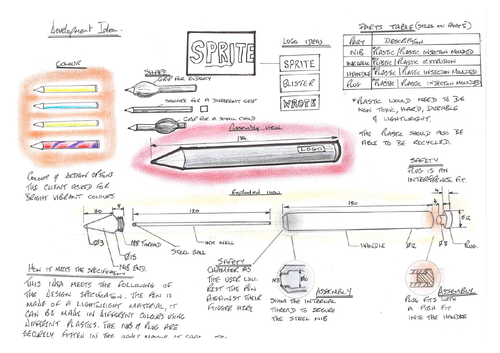 Development Idea.
COLOUR
COLOUR & DESIGN OPTIONS
THE CLIENT ASKED FOR
BRIGHT VIBRANT COLOURS.
SHAPE
GRIP FOR ENERGY
SQUARE FOR A DIFFERENT GRIP
GRIP FOR A SMALL CHILD
SPRITE
LOGO IDEAS
SPRITE
BLISTER
WRITE
PARTS TABLE
PART
DESCRIPTION
NIB
PLASTIC / PLASTIC INJECTION MOULDED
INK WELL
PLASTIC / PLASTIC EXTRUSION
HANDLE
PLASTIC / PLASTIC INJECTION MOULDED
PLUG
PLASTIC / PLASTIC INJECTION MOULDED
*PLASTIC WOULD NEED TO BE
NON TOXIC, HARD, DURABLE
& LIGHTWEIGHT.
THE PLASTIC SHOULD ALSO BE
ABLE TO BE RECYCLED.
ASSEMBLY VIEW
LOGO
SAFETY
PLUG IS AN
INTERFERENCE FIT.
EXPLODED VIEW
30
120
150
4
Ø3
Ø15
M8 THREAD
NIB END.
STEEL BALL
INK WELL
HANDLE
Ø12
Ø8
Ø12
PLUG.
SAFETY
CHAMFER AS
THE USER WILL
REST THE PEN
AGAINST THEIR
FINGER HERE
ASSEMBLY
SHOWS THE INTERNAL
THREAD TO SECURE
THE STEEL NIB
ASSEMBLY
PLUG FITS WITH
A PUSH FIT
INTO THE HANDLE
HOW IT MEETS THE SPECIFICATION
THIS IDEA MEETS THE FOLLOWING OF
THE DESIGN SPECIFICATION. THE PEN IS
MADE OF A LIGHTWEIGHT MATERIAL, IT
CAN BE MADE IN DIFFERENT COLOURS USING
DIFFERENT PLASTICS. THE NIB & PLUG ARE